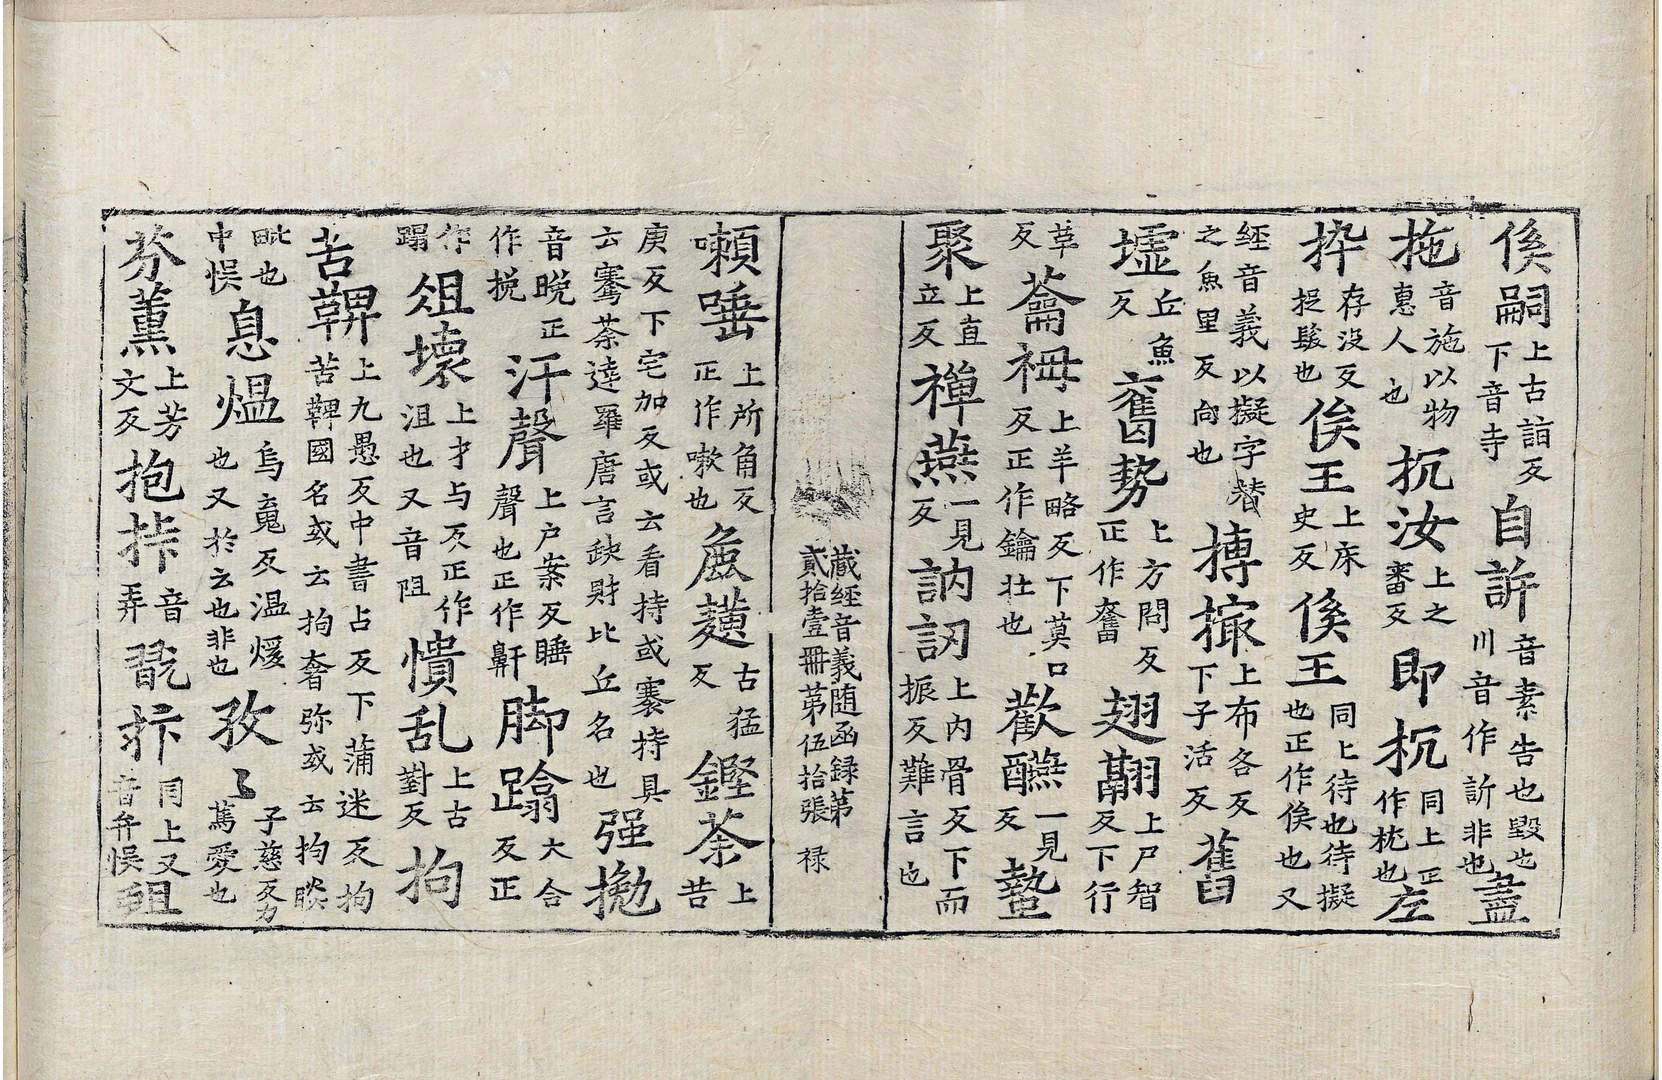 俟嗣上古詣反下音寺自訴音素告也毀也川音作訢非也蓋
拖音施以物惠人也抗汝上之審反即抗同上正作枕也左
捽存没反捉髮也俟王上床史反俟王同上待也待擬也正作俟也又
經音義以擬字替之魚里反向也搏撮上布各反下子活反舊
墟丘魚反奮勢上方問反正作奮翅翮上尸智反下行
革反龠拇上羊略反下莫口反正作鑰壯也歡醼一見反蟄
聚上直立反禪燕一見反訥訒上内骨反下而振反難言也
藏經音義随函録第貳拾壹冊第伍拾張 禄
嗽唾上所角反正作嗽也麁䵃古猛反鏗荼上苦
庚反下宅加反或云看持或云褰持具云騫荼達羅唐言缺財比丘名也强挽
音晚正作挽汗聲上户案反睡聲也正作鼾脚蹹大合反正
作蹋俎壞上才与反正作沮也又音阻憒乱上古對反拘
苫鞞上九愚反中書占反下蒲迷反拘苫鞞國名或云拘奢弥或云拘睒
毗也中悮息煴烏寬反温煖也又於云也非也孜〻子慈反力篤愛也
芬薰上芳文反抱挊音弄翫抃同上又音弁悮俎